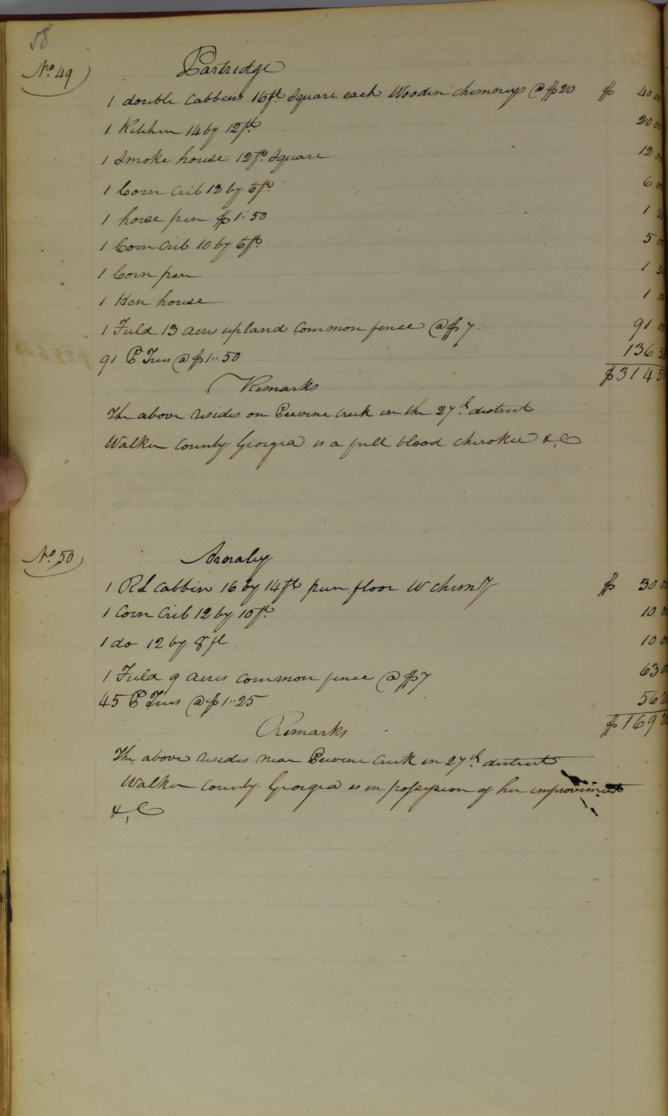 58
No. 49 Partridge
1 double Cabbins 16ft Square each Wooden chimneys @ $20 $ 40 00
1 Kitchen 14 by 12ft 20 00
1 Smoke house 12ft Square 12
1 Corn Crib 12 by 6ft 6
1 horse pen $1.50 1
1 Corn Crib 10 by 6ft 5
1 Corn pen 1
1 Hen house 1
1 Field 13 acres upland common fence @ $7 91
91 P Trees @ $1.50 136
$314
Remarks
The above resides on Peevine Creek in the 27th district
Walker County Georgia is a full blood cherokee &C
No. 50
1 RL Cabbin 16 by 14ft pun floor W chimy $ 30
1 Corn Crib 12 by 10ft 10
1 do 12 by 8ft 10
1 Field 9 acres common fence @ $7 63
45 P Trees @ $1.25 56
$169
Remarks
The above resides near Peevine Creek in 27th district
Walker County Georgia is in possession of her improvement
&,C